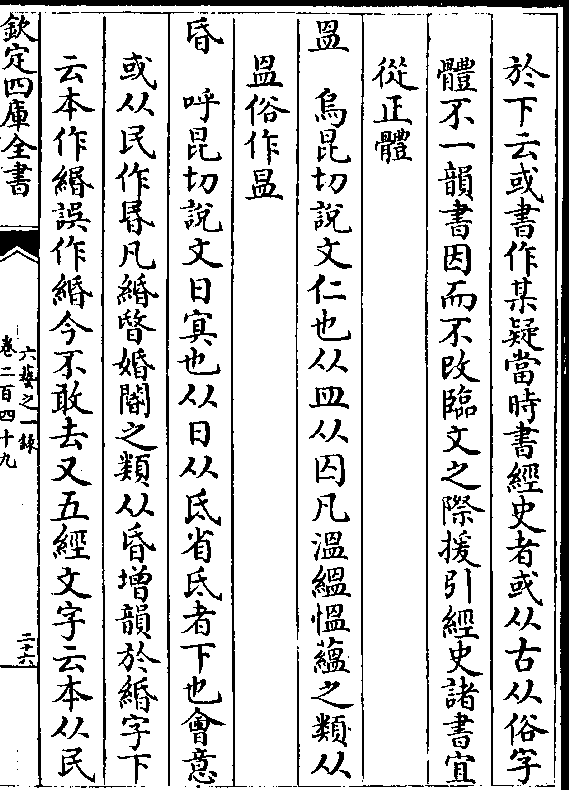 於下云或書作某疑當時書經史者或从古从俗字
體不一韻書因而不改臨文之際援引經史諸書宜
從正體
昷 烏昆切說文仁也从皿从囚凡溫緼愠蘊之類从
昷俗作昷
昏 呼昆切說文日冥也从日从氐省氐者下也會意
或从民作昬凡緍暋婚閽之類从昏增韻於緍字下
云本作緡誤作緍今不敢去又五經文字云本从民
欽定四庫全書
六藝之一録
卷二百四十九
二十六